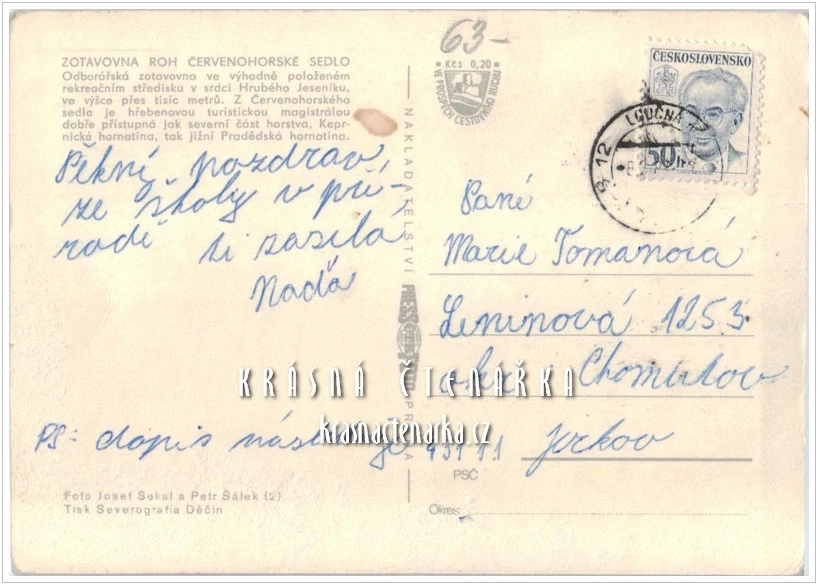 63-
ZOTAVOVNA ROH ČERVENOHORSKÉ SEDLO
Odborářská zotavovna ve výhodně položeném
rekreačním středisku v srdci Hrubého Jeseníku,
ve výšce přes tisíc metrů. Z Červenohorského
sedla je hřebenovou turistickou magistrálou
dobře přístupná jak severní část horstva, Kepr-
nická hornatina, tak jižní Pradědská hornatina.
Kčs 0,20
VE PROSPĚCH CESTOVNÍHO RUCHU
ČESKOSLOVENSKO
50
LOUČNÁ
12
Pěkný pozdrav
ze školy v pří-
rodě ti zasílá
Naďa
PS: dopis následuje
NAKLADATELSTVÍ
PRAHA
Paní
Marie Tomanová
Leninová 1253
okr. Chomutov
431 11 Jirkov
PSČ
Okres
KRÁSNÁ ČTENÁŘKA
krasnactenarka.cz
Foto Josef Sekal a Petr Šálek (2)
Tisk Severografia Děčín